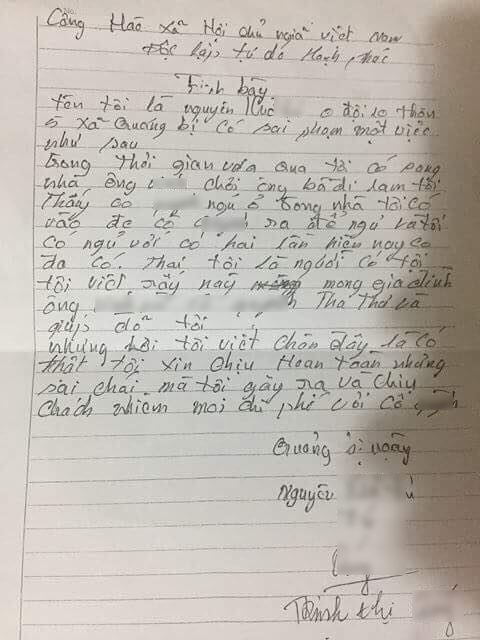 Cộng Hào xã Hội chủ nghiã việt nam
Độc lập, tự do Hạnh phúc
trình bày
tên tôi là nguyên đội 10 thôn
5 xã Quảng bị có sai phạm một việc
như sau
trong thời gian vưa qua tôi có sang
nhà ông chỏi ông bà đi lam tôi
thấy cô ngu ỏ trong nhà tôi có
vào để cô ra để ngu và tôi
có ngu với cô hai lần hiện nay cô
đa có thai tôi là người có tội
tôi viết dấy này mong gia đình
ông Tha Thơ và
giúp đỡ tôi
những lời tôi viết chên đây là có
thật tôi xin chịu Hoan toan những
sai chai mà tôi gây ra và chịu
chách nhiệm moi chi phế với cô
Quảng bị ngày
Nguyên
Trinh thị